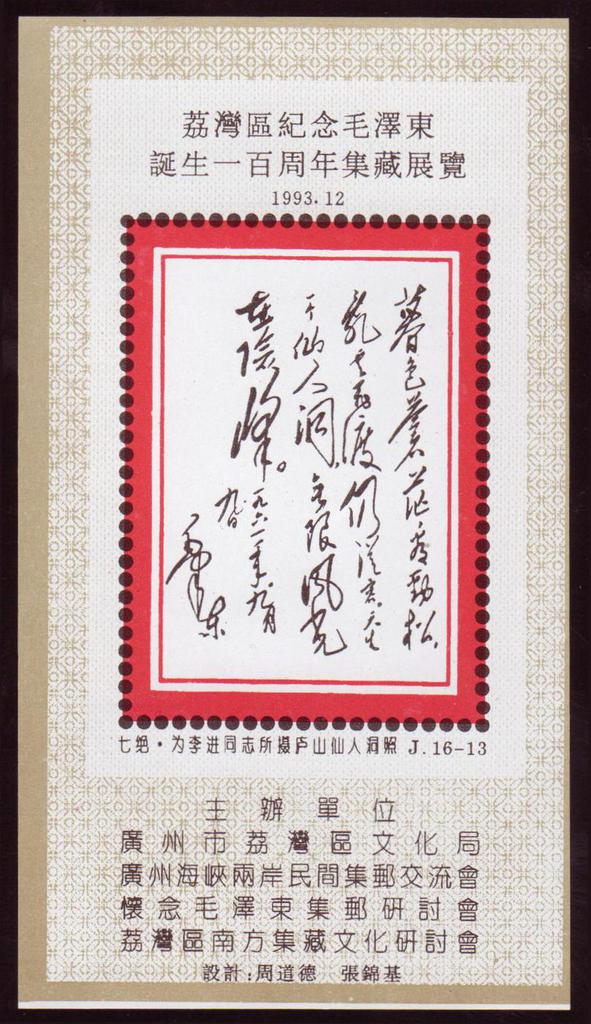 荔灣區紀念毛澤東
誕生一百周年集藏展覽
1993.12
暮色蒼茫看勁松,
亂雲飛渡仍從容。天生
一個仙人洞,無限風光
在險峰。
一九六一年九月
九日
毛澤東
七绝·为李进同志所摄庐山仙人洞照 J.16-13
主辦單位
廣州市荔灣區文化局
廣州海峽兩岸民間集郵交流會
懷念毛澤東集郵研討會
荔灣區南方集藏文化研討會
設計:周道德 張錦基